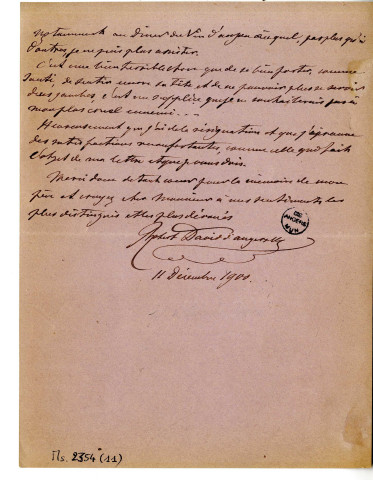 notamment au diner du Vin d'anjou auquel, pas plus qu'à
d'autres, je ne puis plus assister.
C'est une bien terrible chose que de se bien porter, comme
santé, de sentir encore sa tête et de ne pouvoir plus se servir
des jambes, c'est un supplice que je ne souhaiterais pas à
mon plus cruel ennemi...
Heureusement que j'ai de la résignation et que j'éprouve
des satisfactions reconfortantes, comme celle qui fait
l'objet de ma lettre et que je vous dois.
Merci donc de tout coeur pour la mémoire de mon
père et croyez cher Monsieur à mes sentiments les
plus distingués et les plus dévoués
Robert David d'angers
11 Décembre 1900.
ANGERS
Ms. 2354 (11)